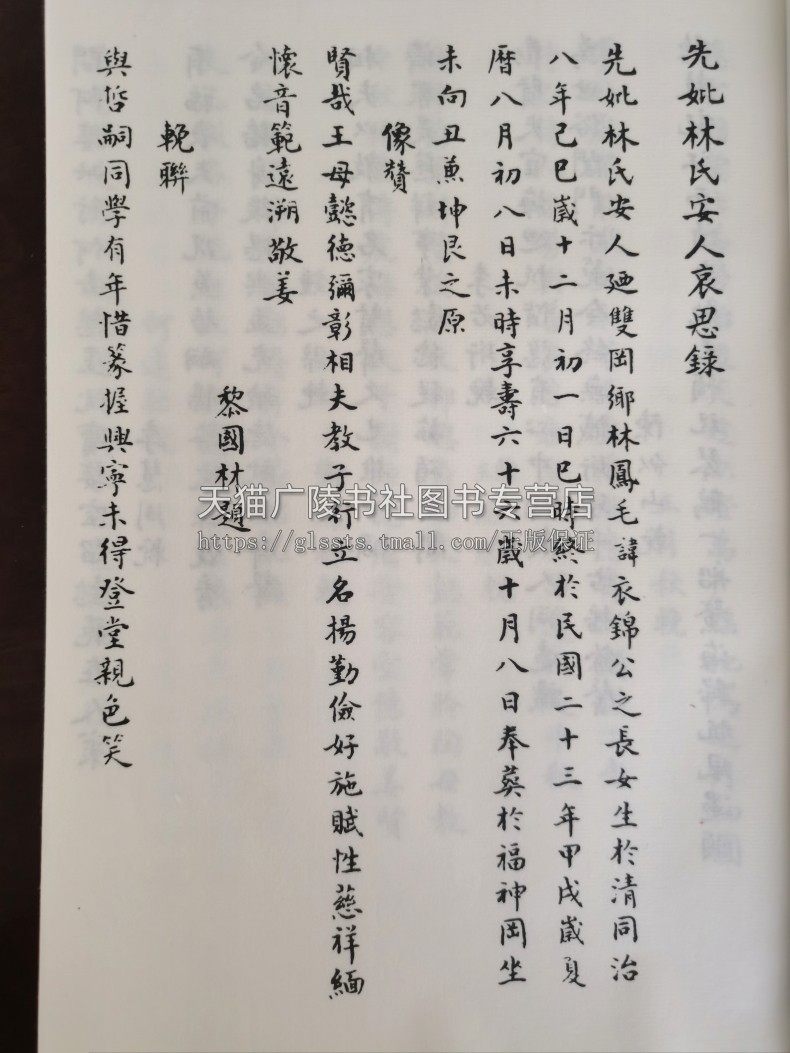 先妣林氏安人哀思錄
先妣林氏安人廼雙岡鄉林鳳毛諱衣錦公之長女生於清同治
八年己巳歲十二月初一日巳時終於民國二十三年甲戌歲夏
曆八月初八日未時享壽六十六歲十月八日奉葬於福神岡坐
未向丑兼坤艮之原
像贊
賢哉王母懿德彌彰相夫教子行立名揚勤儉好施賦性慈祥緬
懷音範遠溯敬姜
黎國材題
輓聯
與哲嗣同學有年惜篆握興寧未得登堂親色笑
天猫广陵书社图书专营店
https://glssts.tmall.com/正版保证